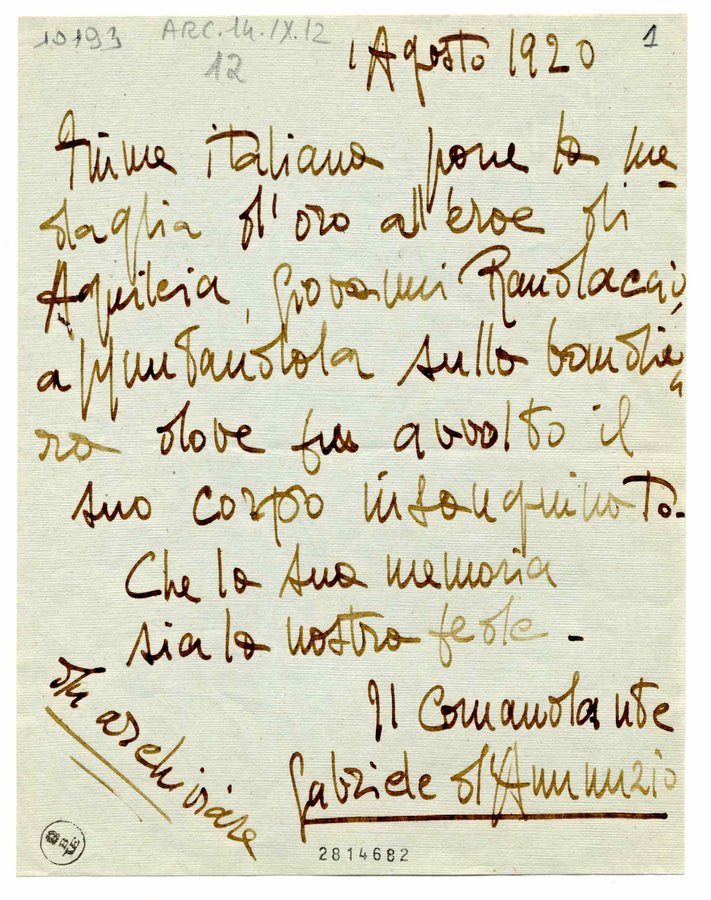 10193 ARC.14.IX.12 1
12
1 Agosto 1920
Fiume italiana pone la me
daglia d'oro all'eroe di
Aquileia, Giovanni Randaccio,
appuntandola sulla bandie
ra dove fu avvolto il
suo corpo insanguinato.
Che la sua memoria
sia la nostra fede -
Il Comandante
Gabriele d'Annunzio
da archiviare
2814682